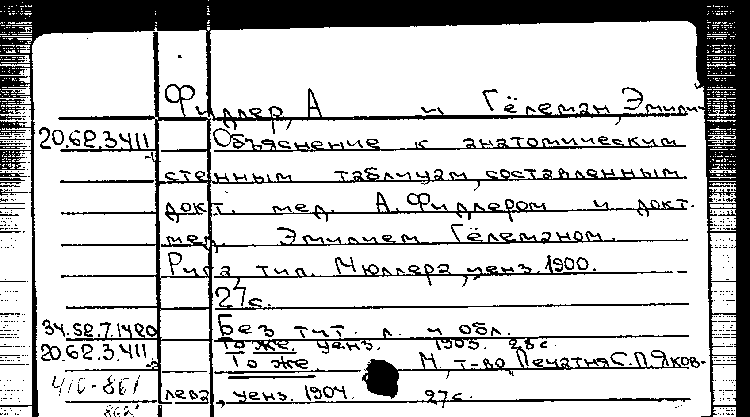 Фидлер, А и Гёлеман, Эмилий
20.62.3.411 Объяснение к анатомическим
стенным таблицам, составленным
докт. мед. А. Фидлером и докт.
мед. Эмилием Гёлеманом.
Рига, тип. Мюллера, ценз. 1900.
27с.
34.52.7.1420 Без тит. л. и обл.
То же. ценз. 1903. 28с.
20.62.3.411 То же М, т-во "Печатня С.П. Яков-
лева, ценз. 1904. 27с.